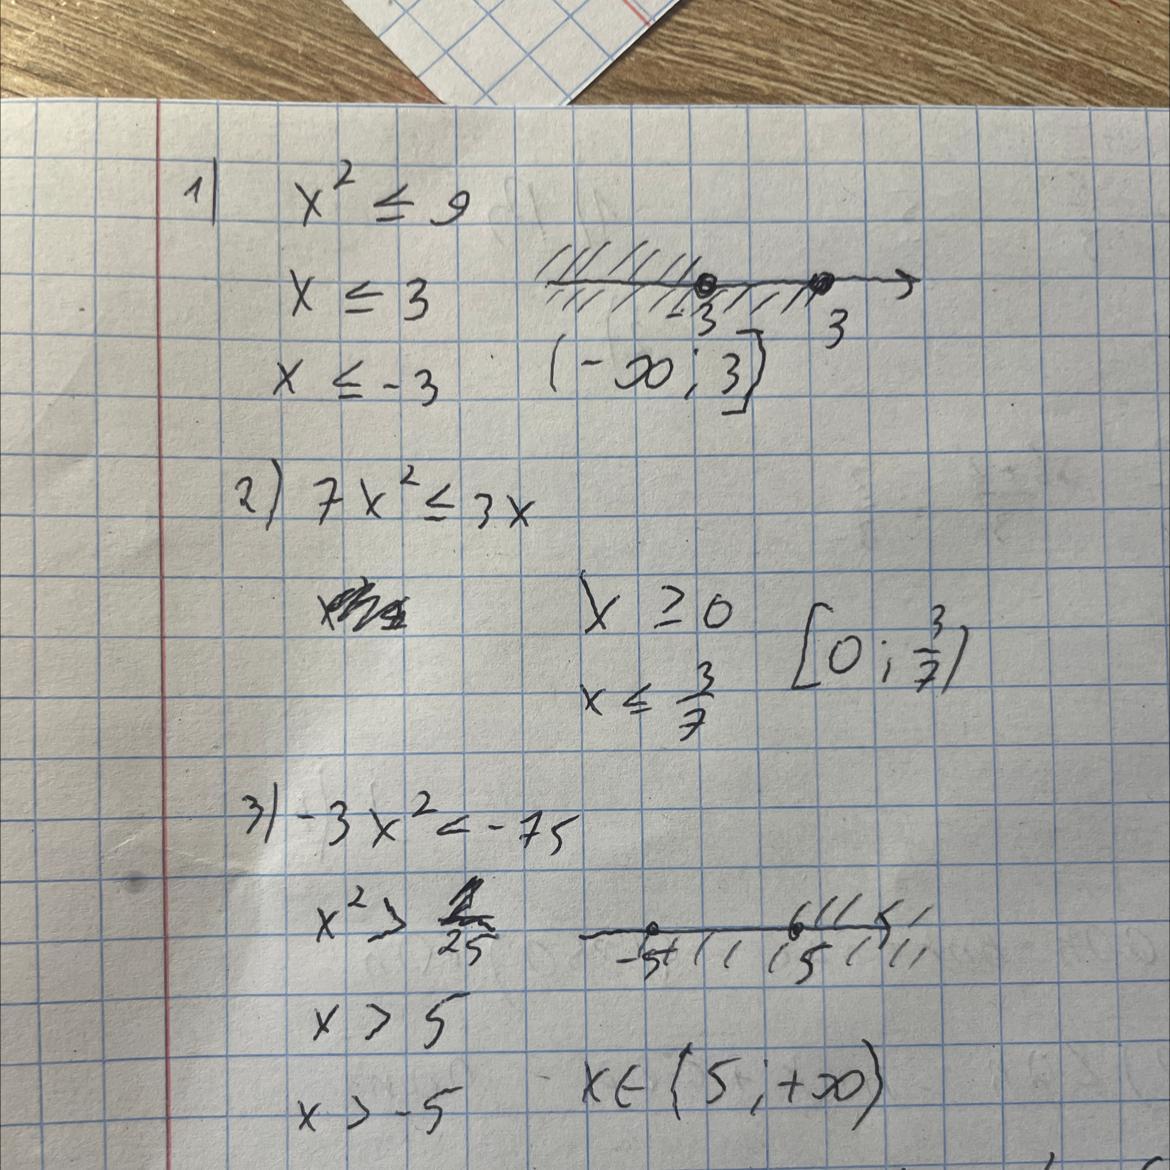 1) x² ≤ 9
x ≤ 3
-3 3
x ≤ -3 (-∞; 3]
2) 7x² ≤ 3x
x ≥ 0
x ≤ 3/7 [0; 3/7)
3) -3x² < -75
x² > 25
-5 5
x > 5
x > -5 x ∈ (5; +∞)